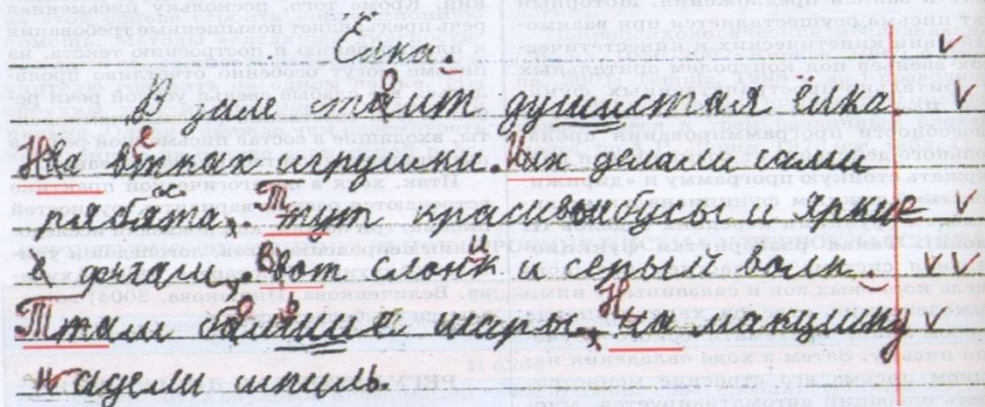 Ёлка.
В зиле стоит душистая ёлка
На ветках игрушки. Их делали сами
рябята, Тут красивыи бусы и яркие
флаги, Вот слоник и серый волк
Там большие шары, На макушку
надели шпиль.